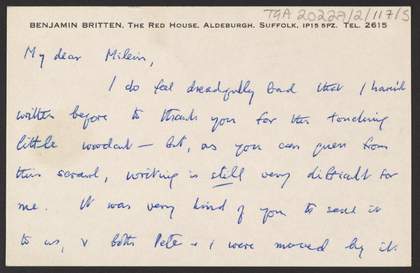 TGA 20222/2/117/5
BENJAMIN BRITTEN, THE RED HOUSE, ALDEBURGH, SUFFOLK, IP15 5PZ. TEL. 2615
My dear Milein,
I do feel dreadfully bad that I haven't
written before to thank you for the touching
little woodcut — but, as you can guess from
this scrawl, writing is still very difficult for
me. It was very kind of you to send it
to us, & both Peter & I were moved by it.